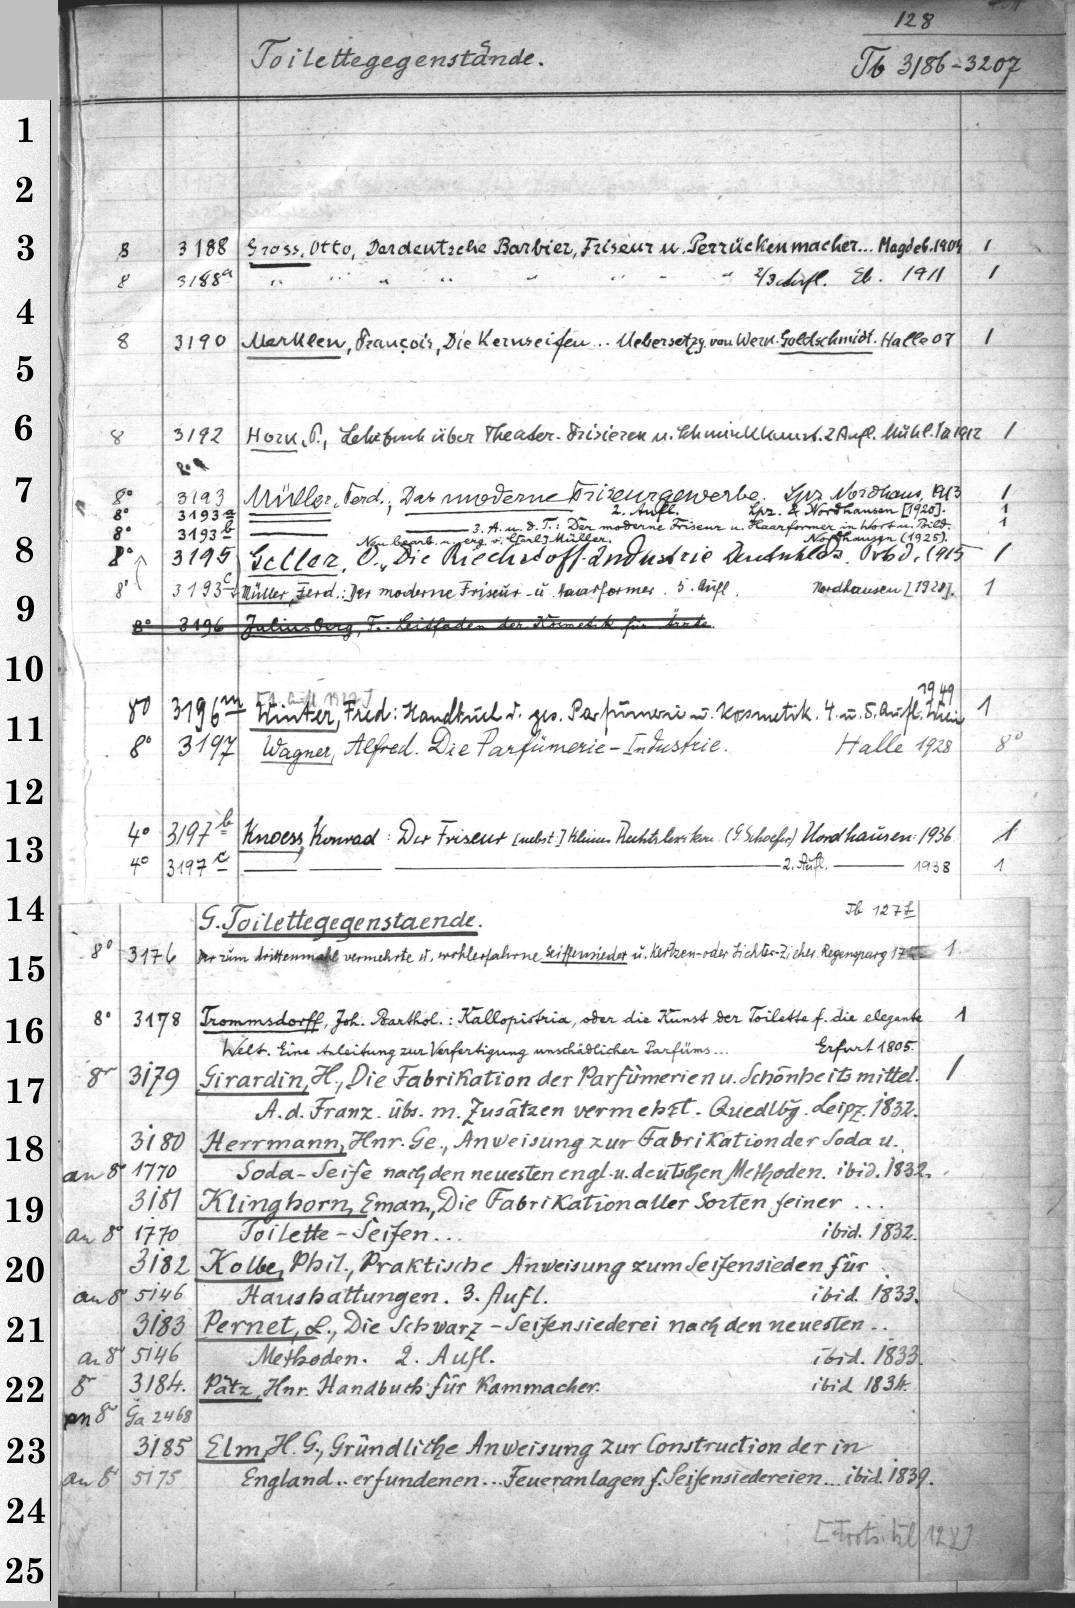 128
Toilettegegenstände.
Tb 3186-3207
1
2
3
8 3188 Gross, Otto, Der deutsche Barbier, Friseur u. Perrückenmacher... Magdeb. 1904 1
8 3188a " " " " " " " 2/3 Aufl. Eb. 1911 1
4
8 3190 Merklen, François, Die Kernseifen... Uebersetzg. von Wern. Goldschmidt. Halle 07 1
5
6
8 3192 Horn, P., Lehrbuch über Theater-Frisieren u. Schminkkunst. 2 Aufl. Mühl. 1912 1
7
8° 3193 Müller, Ferd., Das moderne Friseurgewerbe. Lpz. Nordhaus. 1913 1
8° 3193a 2. Aufl. Lpz. & Nordhausen [1920]. 1
8° 3193b 3. A. u. d. T.: Der moderne Friseur u. Haarformer in Wort u. Bild. 1
Neu bearb. u. erg. v. [Carl] Müller. Nordhausen (1925).
8
8° 3195 Geller, O., Die Riechstoff-Industrie Deutschlds. 1915 1
8° 3193c Müller, Ferd.: Der moderne Friseur u. Haarformer. 5. Aufl. Nordhausen [1928]. 1
9
8° 3196 Juliusberg, F.: Leitfaden der Kosmetik für Ärzte.
10
1949
80 3196m Winter, Fred: Handbuch d. ges. Parfümerie u. Kosmetik. 4. u. 5. Aufl. Wien 1
11
8° 3197 Wagner, Alfred. Die Parfümerie-Industrie. Halle 1928 8°
12
4° 3197b Knoess, Konrad: Der Friseur [nebst:] Kleines Rechtslexikon. (G. Schaefer) Nordhausen: 1936 1
13
4° 3197c 2. Aufl. 1938 1
14
G. Toilettegegenstaende.
Tb 127
8° 3176 Der zum drittenmahl vermehrte u. wohlerfahrne Seiffensieder u. Kertzen- oder Lichter-Zieher. 1
15
8° 3178 Trommsdorff, Joh. Barthol.: Kallopistria, oder die Kunst der Toilette f. die elegante 1
16
Welt. Eine Anleitung zur Verfertigung unschädlicher Parfüms... Erfurt 1805.
8° 3179 Girardin, H., Die Fabrikation der Parfümerien u. Schönheitsmittel. 1
17
A. d. Franz. übs. m. Zusätzen vermehrt. Quedlbg. Leipz. 1832.
3180 Herrmann, Hnr. Ge., Anweisung zur Fabrikation der Soda u.
18
an 8° 1770 Soda-Seife nach den neuesten engl. u. deutschen Methoden. ibid. 1832.
3181 Klinghorn, Eman., Die Fabrikation aller Sorten feiner ...
19
an 8° 1770 Toilette-Seifen... ibid. 1832.
3182 Kolbe, Phil., Praktische Anweisung zum Seifensieden für
20
an 8° 5146 Haushaltungen. 3. Aufl. ibid. 1833.
3183 Pernet, L., Die Schwarz-Seifensiederei nach den neuesten ..
21
an 8° 5146 Methoden. 2. Aufl. ibid. 1833.
8° 3184. Pätz, Hnr. Handbuch für Kammacher. ibid 1834.
22
an 8° Ga 2468
3185 Elm, H. G., Gründliche Anweisung zur Construction der in
23
an 8° 5175 England.. erfundenen... Feueranlagen f. Seifensiedereien... ibid. 1839.
24
128]
25